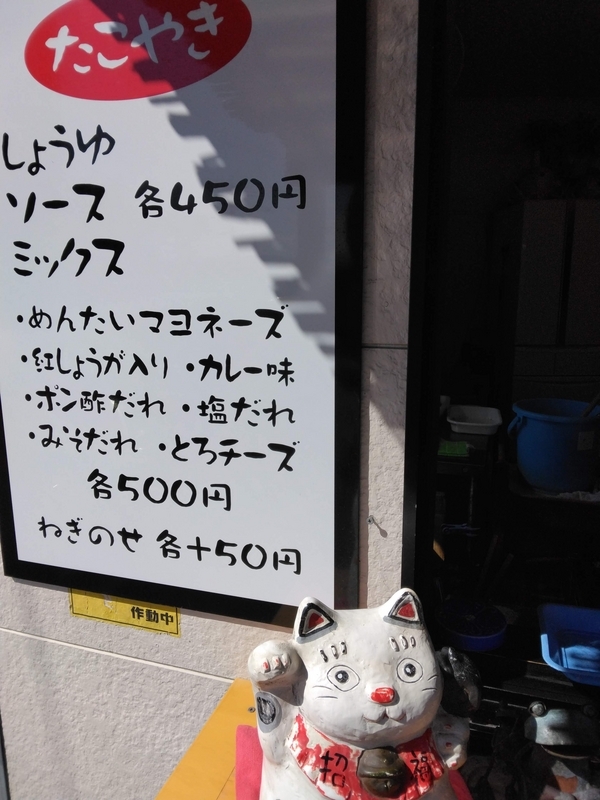 たこやき
しょうゆ
ソース 各450円
ミックス
・めんたいマヨネーズ
・紅しょうが入り ・カレー味
・ポン酢だれ ・塩だれ
・みそだれ ・とろチーズ
各500円
ねぎのせ 各+50円
作動中
招 福